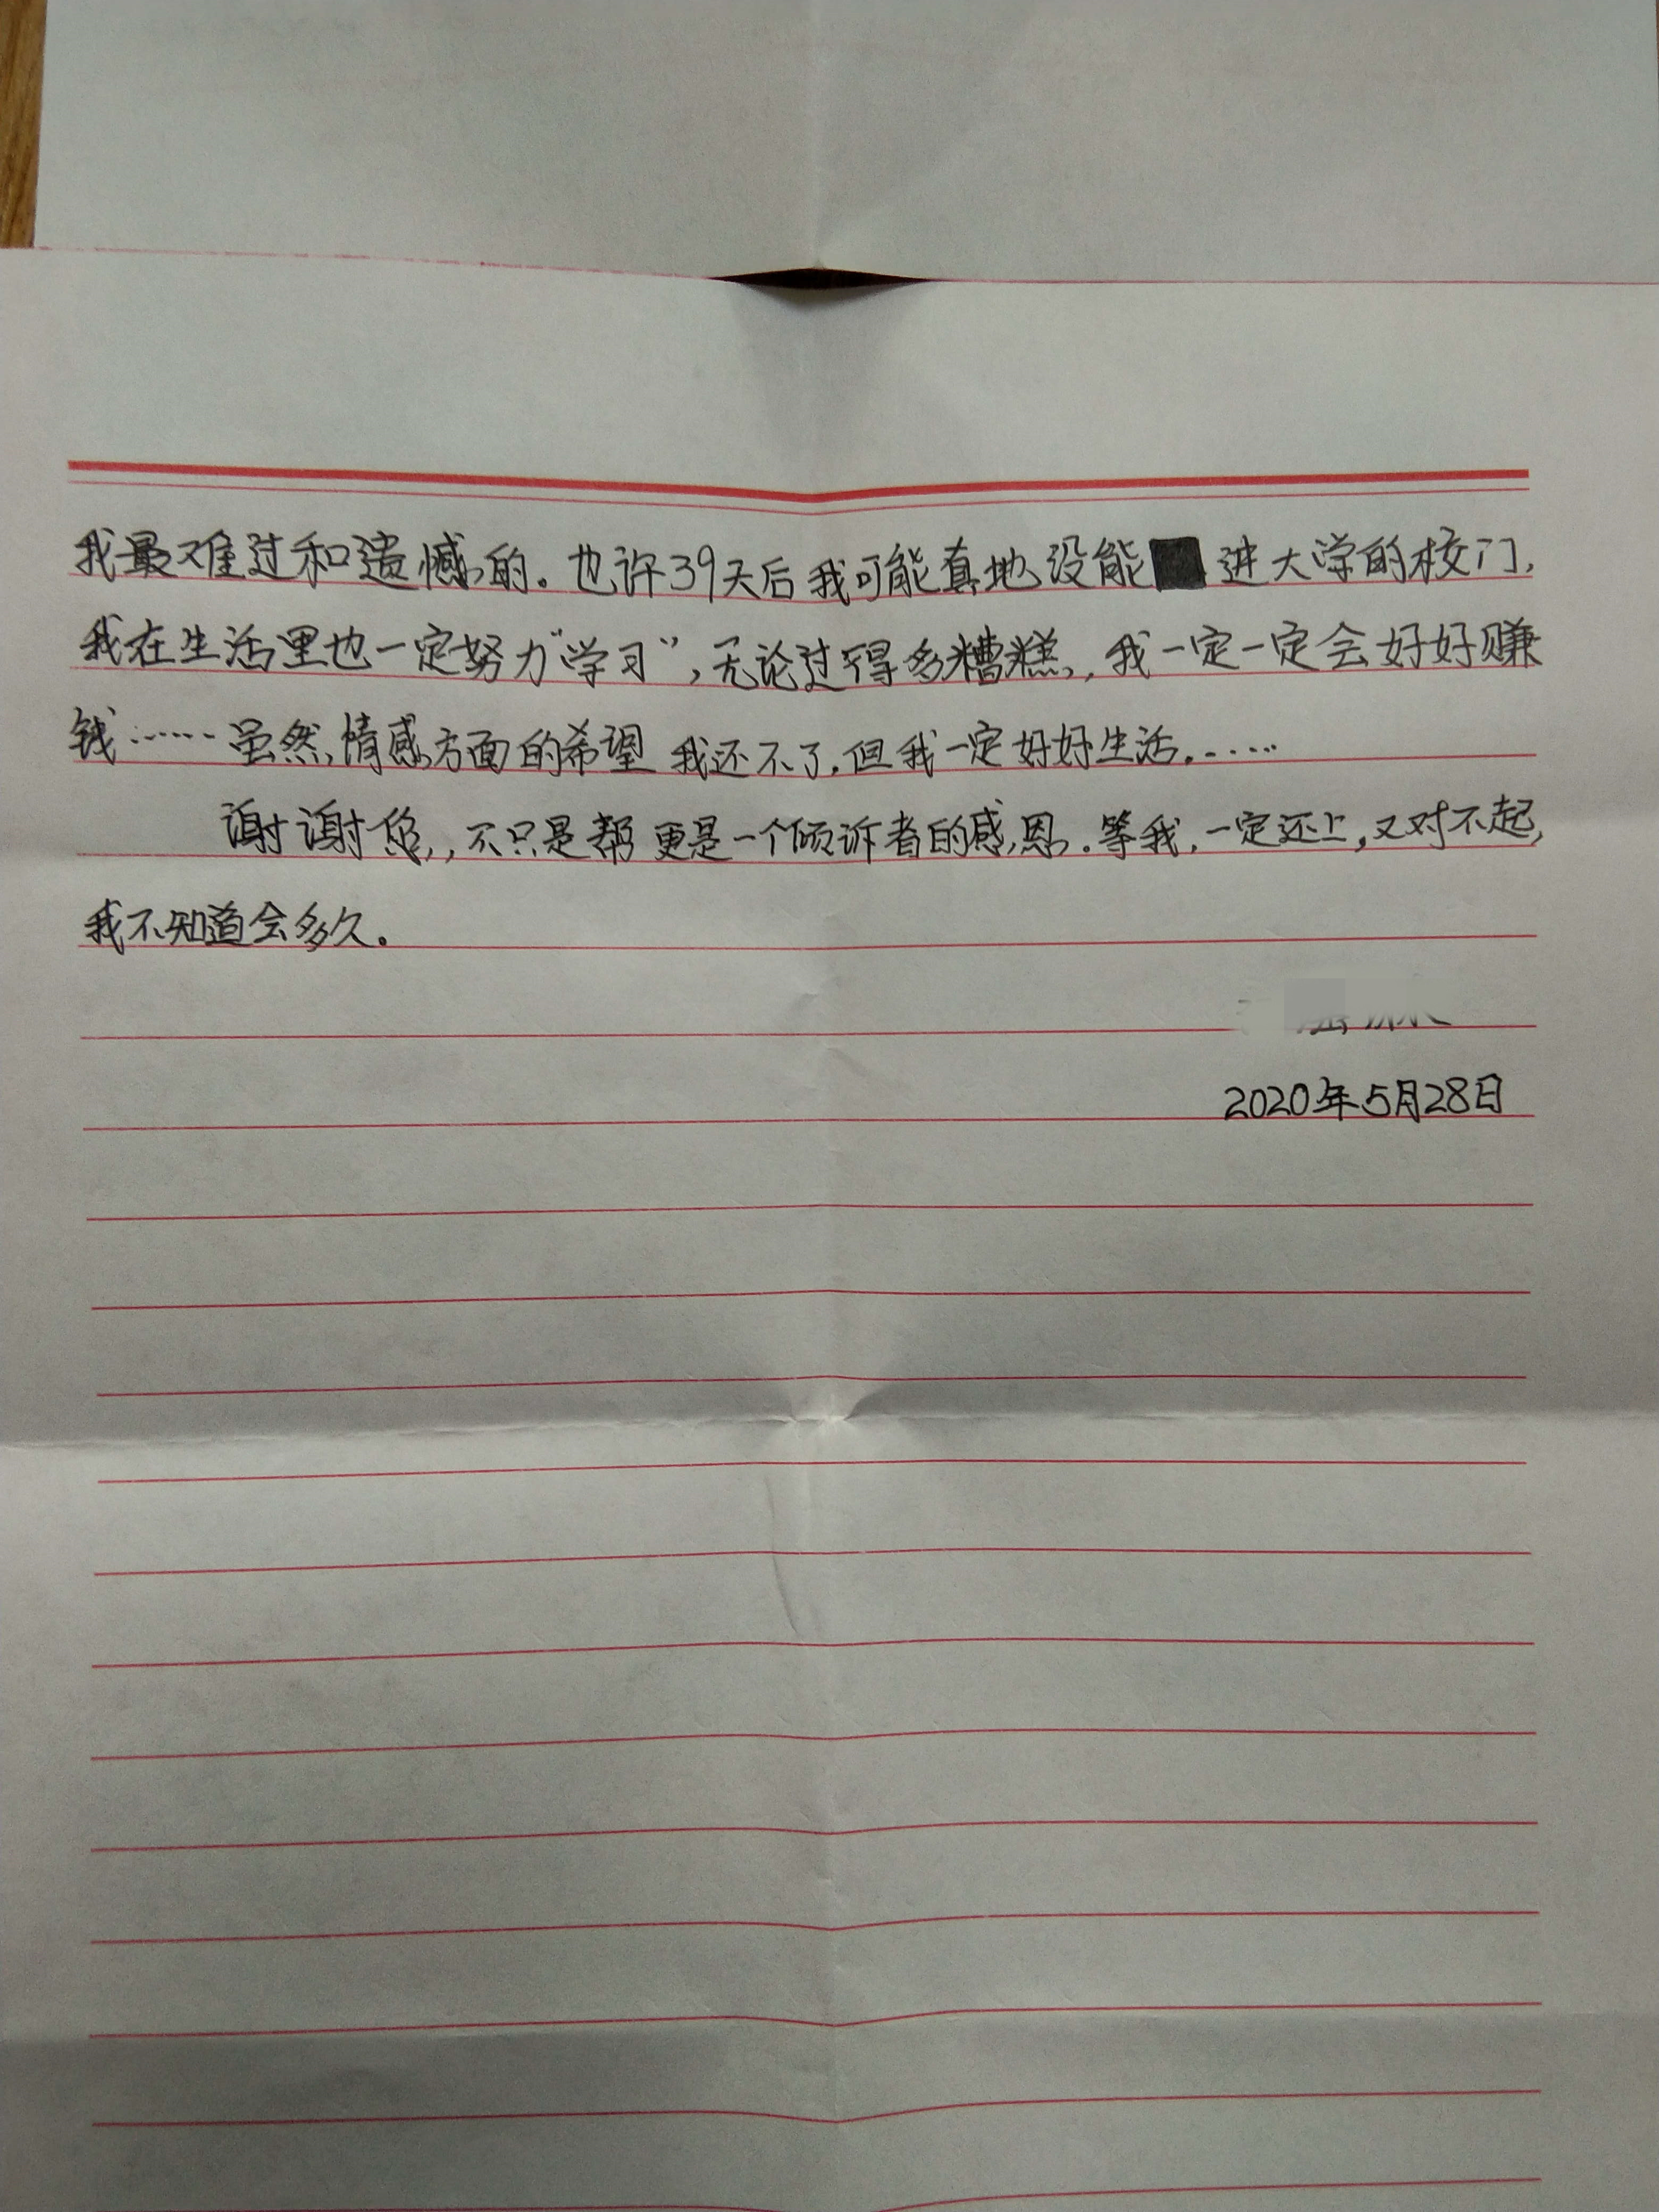 我最难过和遗憾的。也许39天后我可能真地没能进大学的校门，
我在生活里也一定努力“学习”，无论过得多糟糕，我一定一定会好好赚
钱……虽然情感方面的希望我还不了，但我一定好好生活。……
谢谢您，不只是帮更是一个倾诉者的感恩。等我，一定还上，又对不起，
我不知道会多久。
2020年5月28日